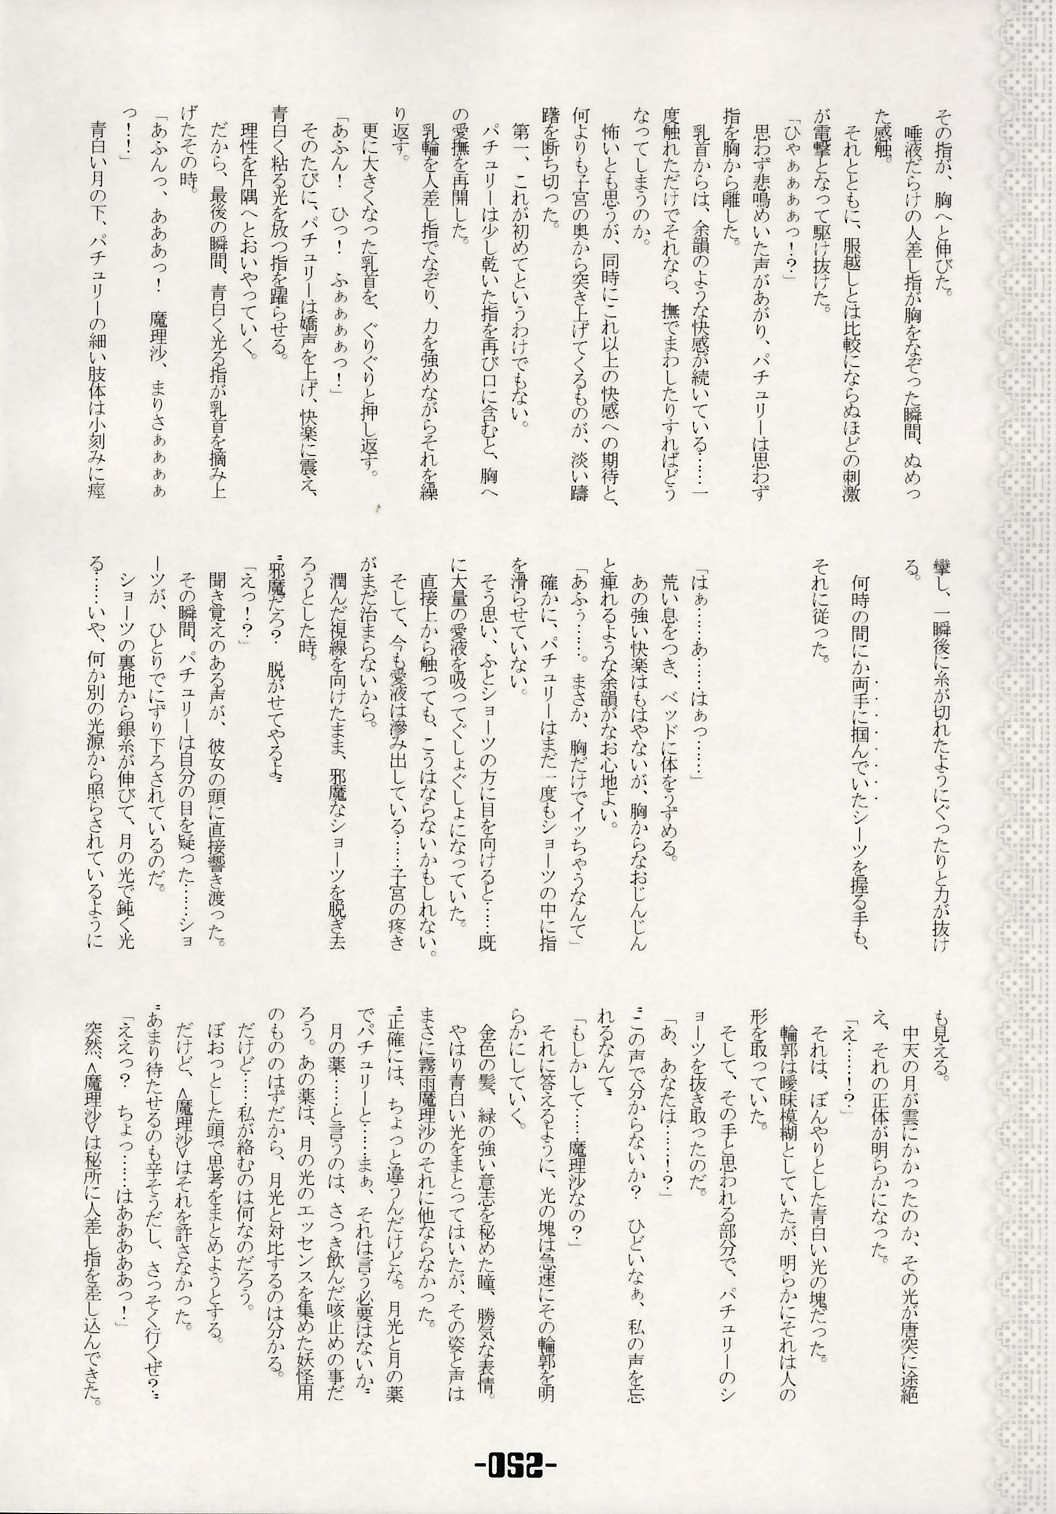 その指が、胸へと伸びた。
唾液だらけの人差し指が胸をなぞった瞬間、ぬめっ
た感触。
それとともに、服越しとは比較にならぬほどの刺激
が電撃となって駆け抜けた。
「ひゃぁぁぁぁっ！？」
思わず悲鳴めいた声があがり、パチュリーは思わず
指を胸から離した。
乳首からは、余韻のような快感が続いている……一
度触れただけでそれなら、撫でまわしたりすればどう
なってしまうのか。
怖いとも思うが、同時にこれ以上の快感への期待と、
何よりも子宮の奥から突き上げてくるものが、淡い躊
躇を断ち切った。
第一、これが初めてというわけでもない。
パチュリーは少し乾いた指を再び口に含むと、胸へ
の愛撫を再開した。
乳輪を人差し指でなぞり、力を強めながらそれを繰
り返す。
更に大きくなった乳首を、ぐりぐりと押し返す。
「あふん！　ひっ！　ふぁぁぁぁっ！」
そのたびに、パチュリーは嬌声を上げ、快楽に震え、
青白く粘る光を放つ指を躍らせる。
理性を片隅へとおいやっていく。
だから、最後の瞬間、青白く光る指が乳首を摘み上
げたその時。
「あふんっ、あああっ！　魔理沙、まりさぁぁぁぁ
っ！！」
青白い月の下、パチュリーの細い肢体は小刻みに痙
攣し、一瞬後に糸が切れたようにぐったりと力が抜け
る。
何時の間にか両手に掴んでいたシーツを握る手も、
それに従った。
「はぁ……あ……はぁっ……」
荒い息をつき、ベッドに体をうずめる。
あの強い快楽はもはやないが、胸からなおじんじん
と痺れるような余韻がなお心地よい。
「あふぅ……。まさか、胸だけでイッちゃうなんて」
確かに、パチュリーはまだ一度もショーツの中に指
を滑らせていない。
そう思い、ふとショーツの方に目を向けると……既
に大量の愛液を吸ってぐしょぐしょになっていた。
直接上から触っても、こうはならないかもしれない。
そして、今も愛液は滲み出している……子宮の疼き
がまだ治まらないから。
潤んだ視線を向けたまま、邪魔なショーツを脱ぎ去
ろうとした時。
〝邪魔だろ？　脱がせてやるよ〟
「えっ！？」
聞き覚えのある声が、彼女の頭に直接響き渡った。
その瞬間、パチュリーは自分の目を疑った……ショ
ーツが、ひとりでにずり下ろされているのだ。
ショーツの裏地から銀糸が伸びて、月の光で鈍く光
る……いや、何か別の光源から照らされているように
も見える。
中天の月が雲にかかったのか、その光が唐突に途絶
え、それの正体が明らかになった。
「え……！？」
それは、ぼんやりとした青白い光の塊だった。
輪郭は曖昧模糊としていたが、明らかにそれは人の
形を取っていた。
そして、その手と思われる部分で、パチュリーのシ
ョーツを抜き取ったのだ。
「あ、あなたは……！？」
〝この声で分からないか？　ひどいなぁ、私の声を忘
れるなんて〟
「もしかして……魔理沙なの？」
それに答えるように、光の塊は急速にその輪郭を明
らかにしていく。
金色の髪、緑の強い意志を秘めた瞳、勝気な表情。
やはり青白い光をまとってはいたが、その姿と声は
まさに霧雨魔理沙のそれに他ならなかった。
〝正確には、ちょっと違うんだけどな。月光と月の薬
でパチュリーと……まぁ、それは言う必要はないか〟
月の薬……と言うのは、さっき飲んだ咳止めの事だ
ろう。あの薬は、月の光のエッセンスを集めた妖怪用
のもののはずだから、月光と対比するのは分かる。
だけど……私が絡むのは何なのだろう。
ぼおっとした頭で思考をまとめようとする。
だけど、<魔理沙>はそれを許さなかった。
〝あまり待たせるのも辛そうだし、さっそく行くぜ？〟
「ええっ？　ちょっ……はあああああっ！」
突然、<魔理沙>は秘所に人差し指を差し込んできた。
-052-